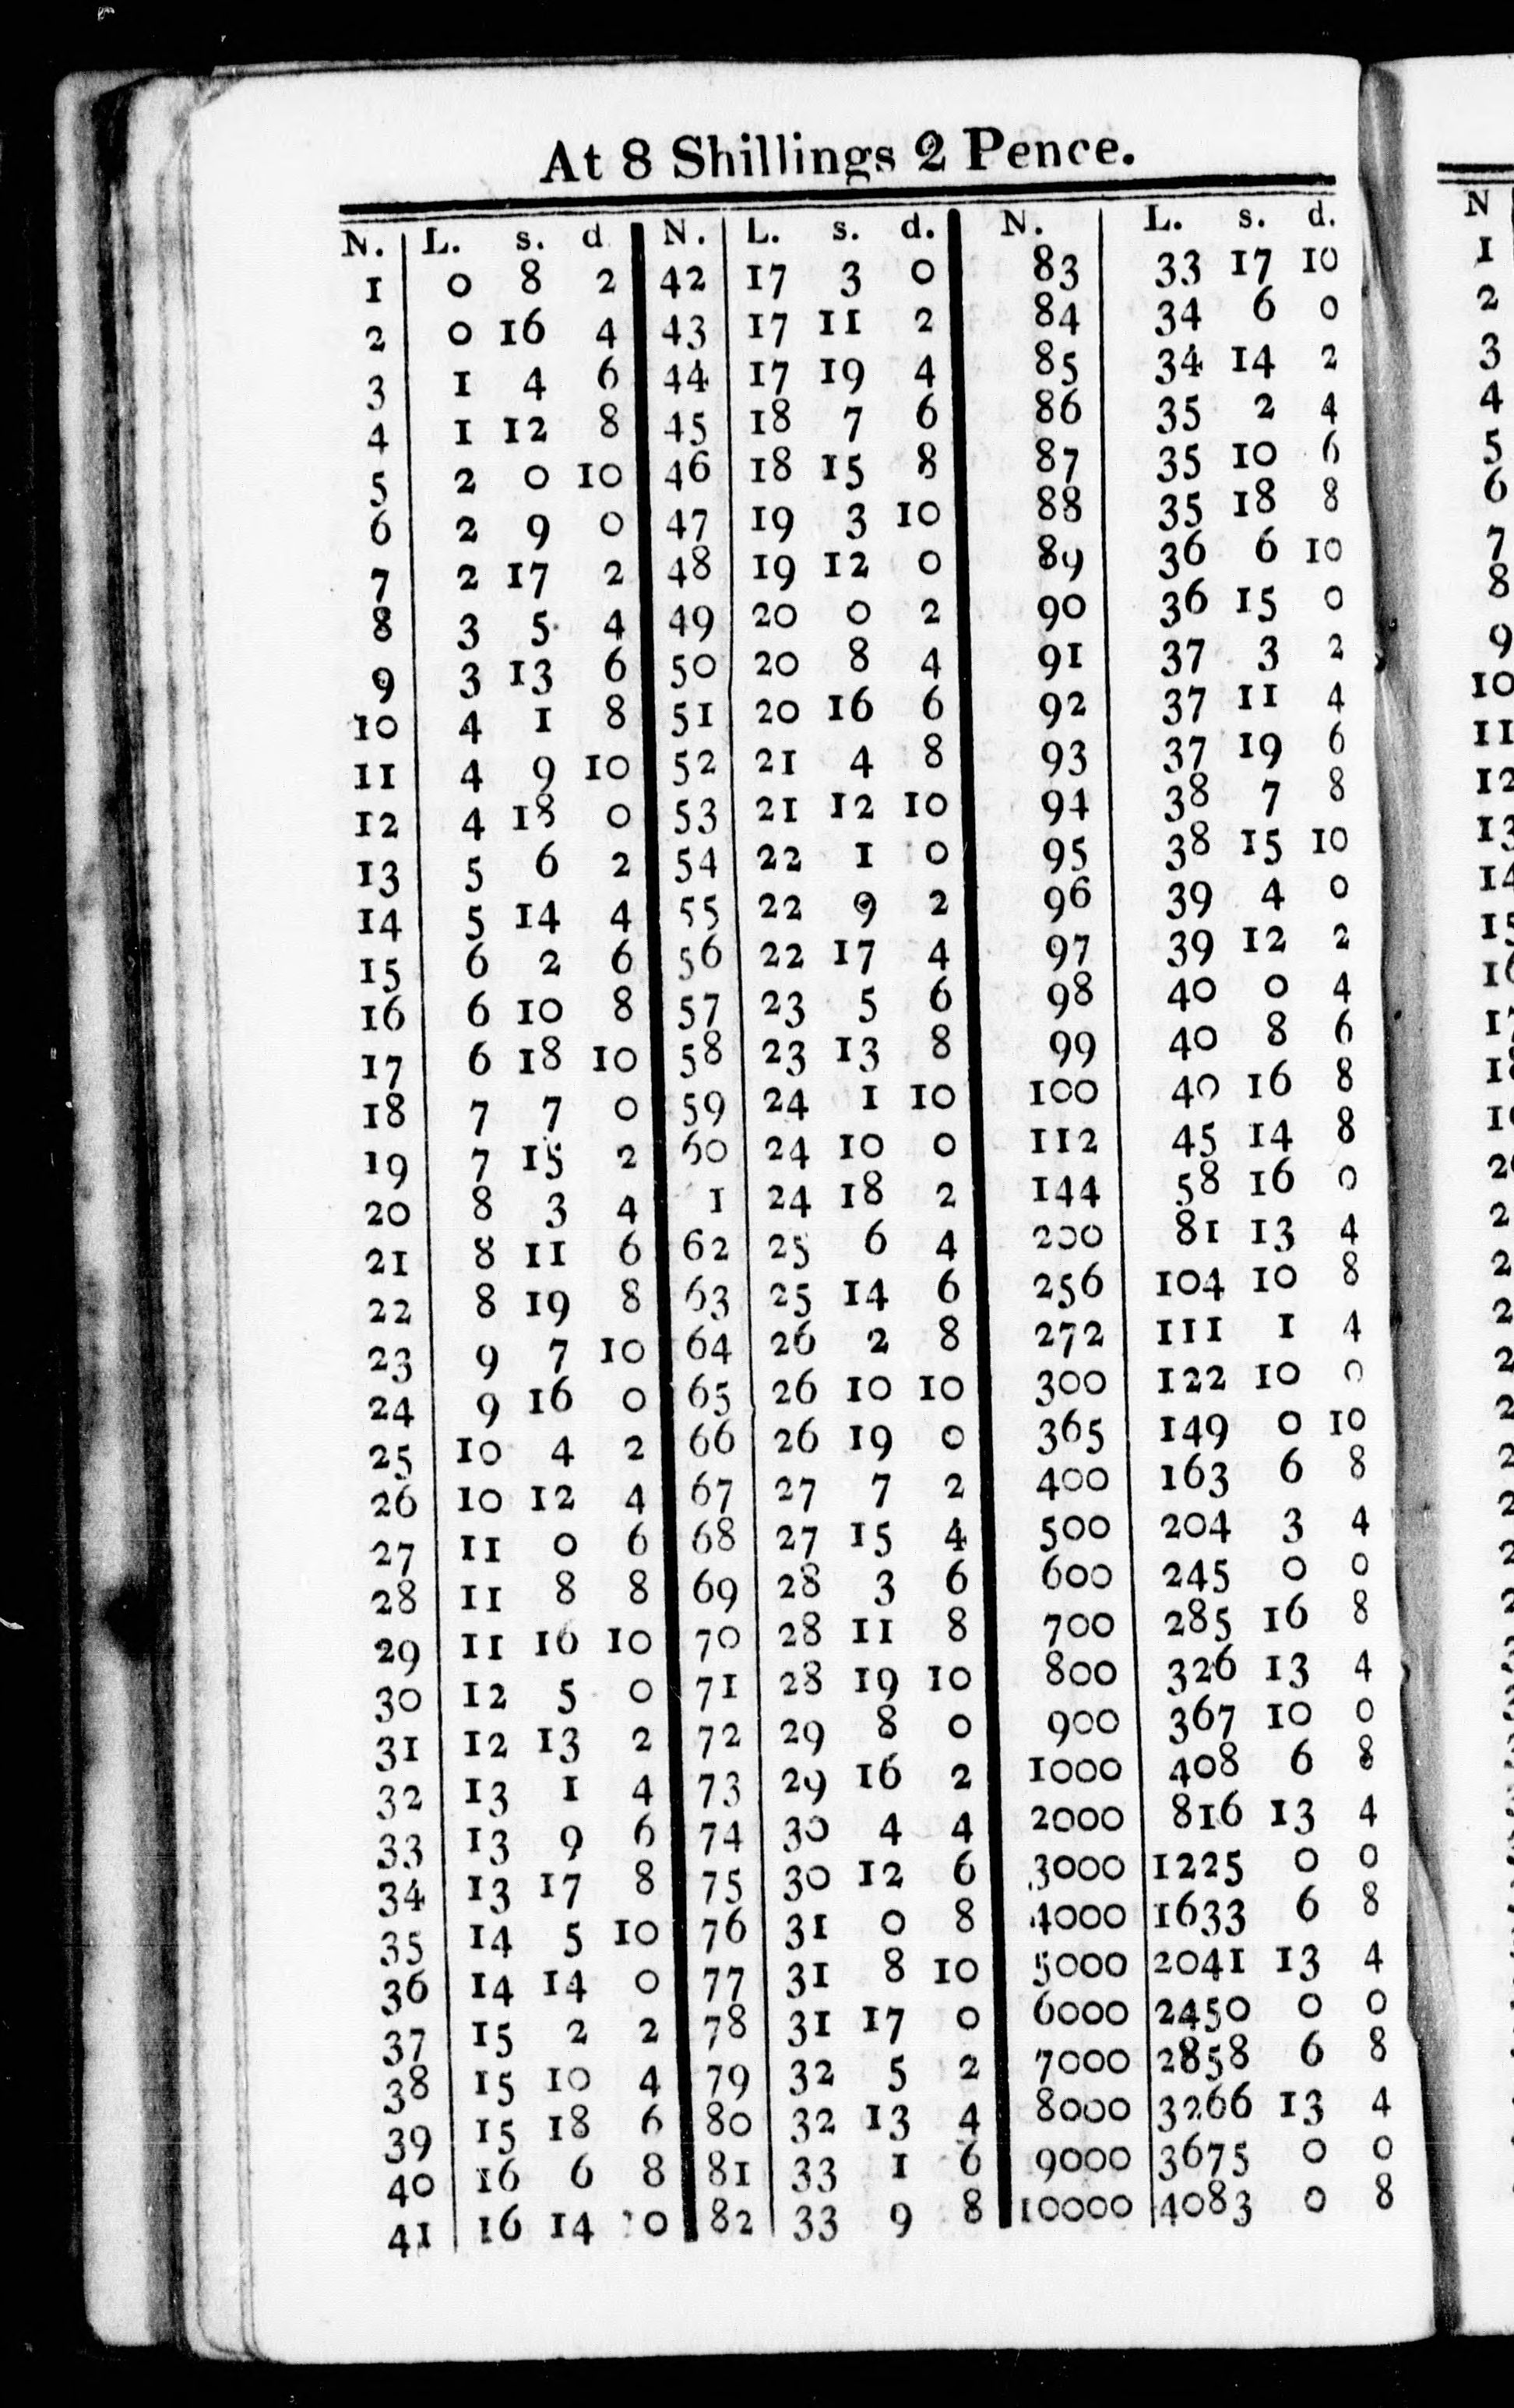 At 8 Shillings 2 Pence.
N. L. s. d N. L. s. d. N. L. s. d.
1 0 8 2 42 17 3 0 83 33 17 10
2 0 16 4 43 17 11 2 84 34 6 0
3 1 4 6 44 17 19 4 85 34 14 2
4 1 12 8 45 18 7 6 86 35 2 4
5 2 0 10 46 18 15 8 87 35 10 6
6 2 9 0 47 19 3 10 88 35 18 8
7 2 17 2 48 19 12 0 89 36 6 10
8 3 5 4 49 20 0 2 90 36 15 0
9 3 13 6 50 20 8 4 91 37 3 2
10 4 1 8 51 20 16 6 92 37 11 4
11 4 9 10 52 21 4 8 93 37 19 6
12 4 18 0 53 21 12 10 94 38 7 8
13 5 6 2 54 22 1 0 95 38 15 10
14 5 14 4 55 22 9 2 96 39 4 0
15 6 2 6 56 22 17 4 97 39 12 2
16 6 10 8 57 23 5 6 98 40 0 4
17 6 18 10 58 23 13 8 99 40 8 6
18 7 7 0 59 24 1 10 100 40 16 8
19 7 15 2 60 24 10 0 112 45 14 8
20 8 3 4 1 24 18 2 144 58 16 0
21 8 11 6 62 25 6 4 200 81 13 4
22 8 19 8 63 25 14 6 256 104 10 8
23 9 7 10 64 26 2 8 272 111 1 4
24 9 16 0 65 26 10 10 300 122 10 0
25 10 4 2 66 26 19 0 365 149 0 10
26 10 12 4 67 27 7 2 400 163 6 8
27 11 0 6 68 27 15 4 500 204 3 4
28 11 8 8 69 28 3 6 600 245 0 0
29 11 16 10 70 28 11 8 700 285 16 8
30 12 5 0 71 28 19 10 800 326 13 4
31 12 13 2 72 29 8 0 900 367 10 0
32 13 1 4 73 29 16 2 1000 408 6 8
33 13 9 6 74 30 4 4 2000 816 13 4
34 13 17 8 75 30 12 6 3000 1225 0 0
35 14 5 10 76 31 0 8 4000 1633 6 8
36 14 14 0 77 31 8 10 5000 2041 13 4
37 15 2 2 78 31 17 0 6000 2450 0 0
38 15 10 4 79 32 5 2 7000 2858 6 8
39 15 18 6 80 32 13 4 8000 3266 13 4
40 16 6 8 81 33 1 6 9000 3675 0 0
41 16 14 10 82 33 9 8 10000 4083 0 8
N
1
2
3
4
5
6
7
8
9
10
11
12
13
14